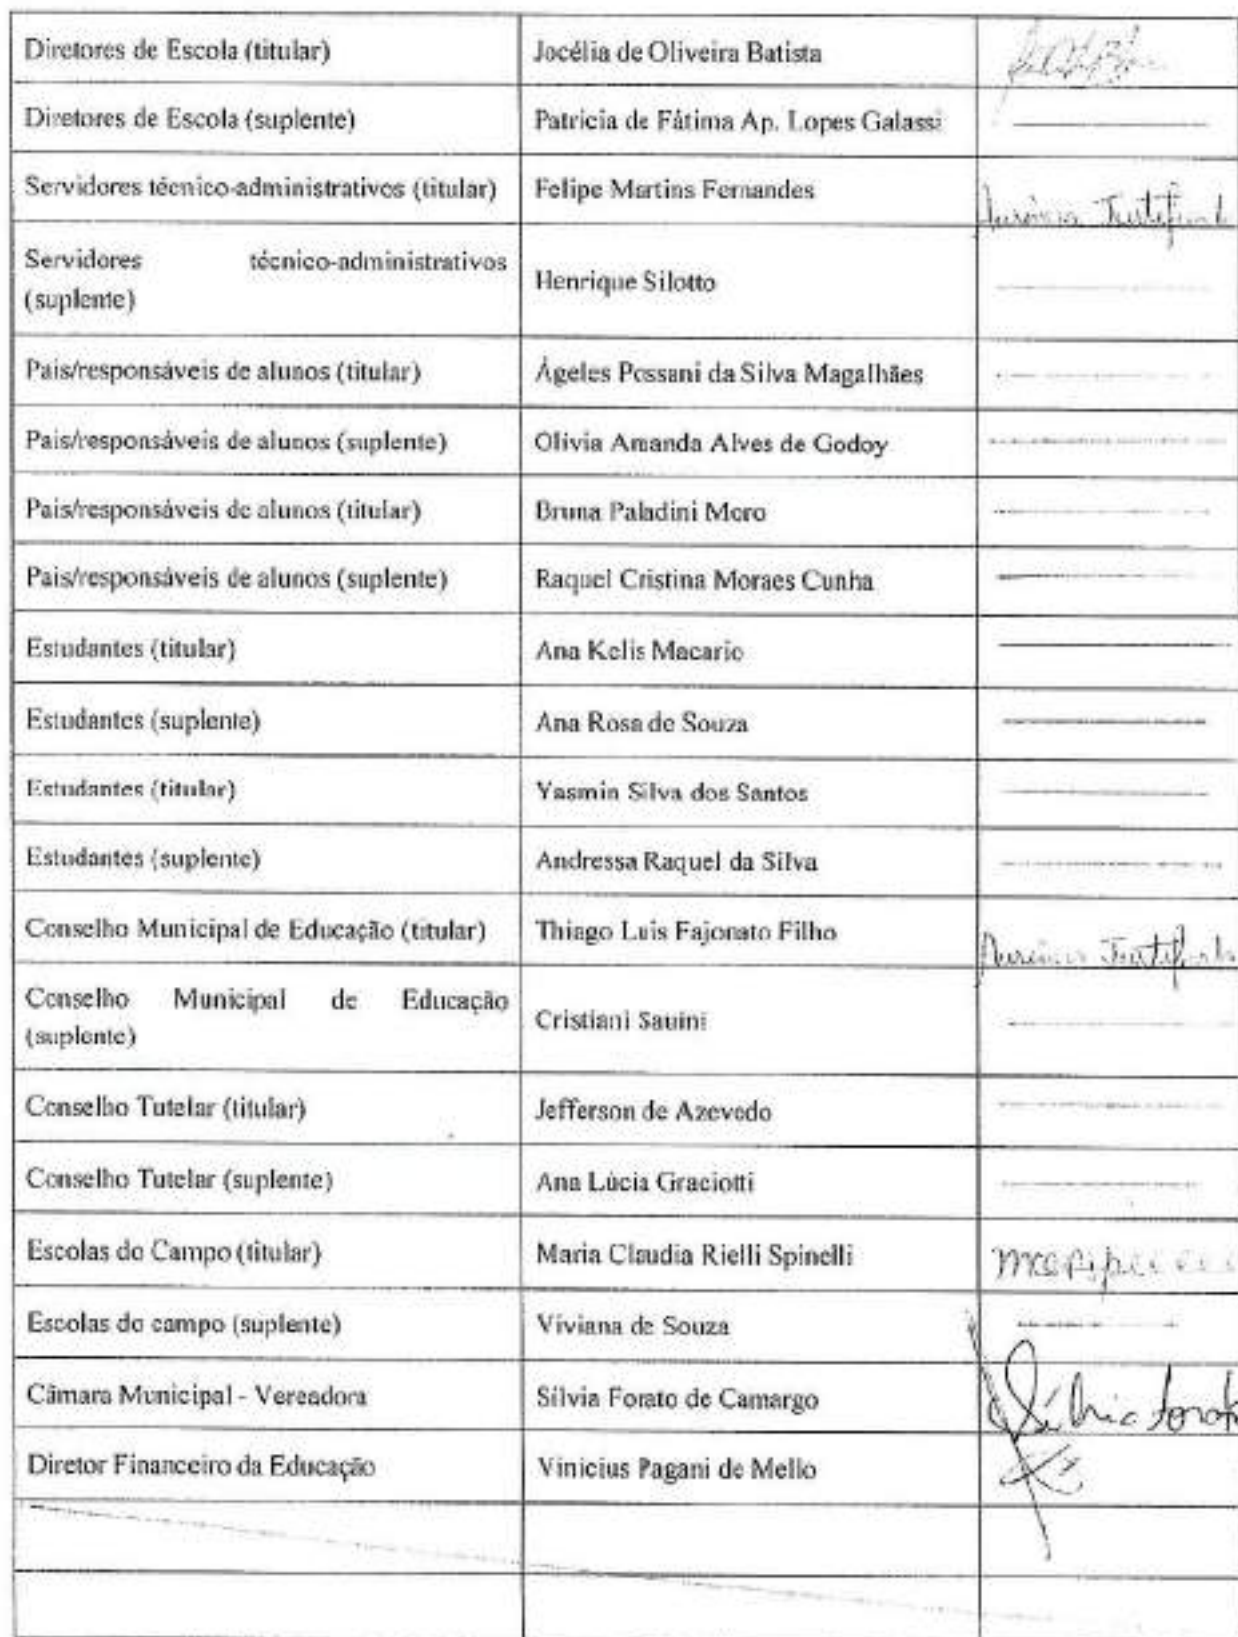 Diretores de Escola (titular) Jocélia de Oliveira Batista
Diretores de Escola (suplente) Patricia de Fátima Ap. Lopes Galassi
Servidores técnico-administrativos (titular) Felipe Martins Fernandes
Servidores técnico-administrativos
(suplente) Henrique Silotto
Pais/responsáveis de alunos (titular) Ágeles Possani da Silva Magalhães
Pais/responsáveis de alunos (suplente) Olivia Amanda Alves de Godoy
Pais/responsáveis de alunos (titular) Bruna Paladini Moro
Pais/responsáveis de alunos (suplente) Raquel Cristina Moraes Cunha
Estudantes (titular) Ana Kelis Macario
Estudantes (suplente) Ana Rosa de Souza
Estudantes (titular) Yasmin Silva dos Santos
Estudantes (suplente) Andressa Raquel da Silva
Conselho Municipal de Educação (titular) Thiago Luis Fajonato Filho
Conselho Municipal de Educação
(suplente) Cristiani Sauini
Conselho Tutelar (titular) Jefferson de Azevedo
Conselho Tutelar (suplente) Ana Lúcia Graciotti
Escolas do Campo (titular) Maria Claudia Rielli Spinelli
Escolas do campo (suplente) Viviana de Souza
Câmara Municipal - Vereadora Sílvia Forato de Camargo Sílvia Forato
Diretor Financeiro da Educação Vinicius Pagani de Mello